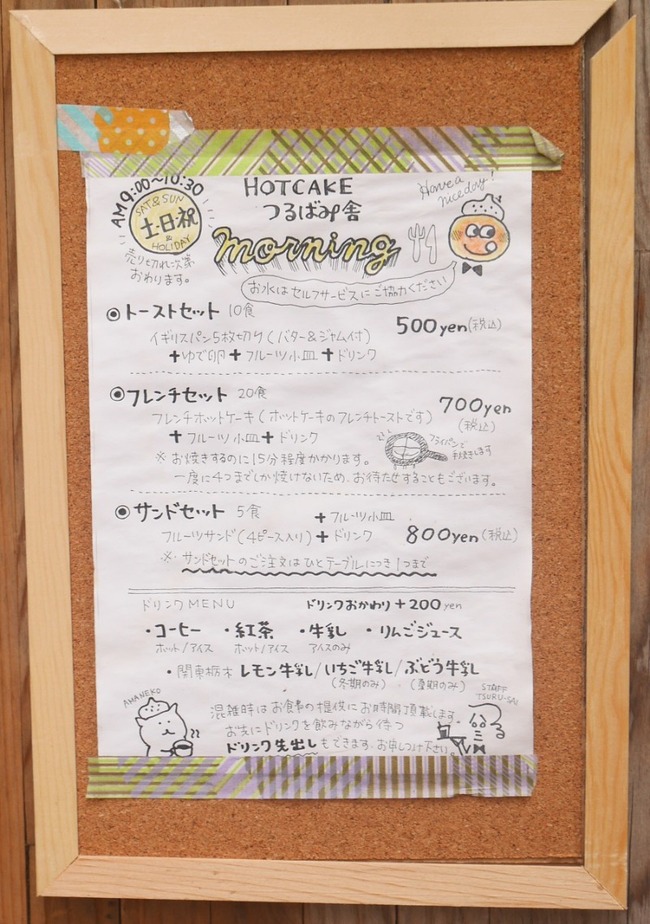 AM9:00~10:30
SAT&SUN
土・日・祝
&
HOLIDAY
売り切れ次第
おわります。
HOTCAKE
つるばみ舎
morning
Have a
nice day!
お水はセルフサービスにご協力ください
トーストセット 10食
500yen(税込)
イギリスパン5枚切り(バター&ジャム付)
+ゆで卵+フルーツ小皿+ドリンク
フレンチセット 20食
700yen
(税込)
フレンチホットケーキ(ホットケーキのフレンチトーストです)
+フルーツ小皿+ドリンク
フライパンで
手焼きします
※お焼きするのに15分程度かかります。
一度に4つまでしか焼けないため、お待たせすることもございます。
サンドセット 5食
+フルーツ小皿
フルーツサンド(4ピース入り)+ドリンク
800yen(税込)
※サンドセットのご注文はひとテーブルにつき1つまで
ドリンクMENU
ドリンクおかわり+200yen
・コーヒー ・紅茶 ・牛乳 ・りんごジュース
ホット/アイス ホット/アイス アイスのみ
・関東栃木レモン牛乳/いちご牛乳/ぶどう牛乳
(冬期のみ) (夏期のみ)
AMANEKO
STAFF
TSURU-SAI
混雑時はお食事の提供にお時間頂戴します。
お先にドリンクを飲みながら待つ
ドリンク先出しもできます。お申しつけ下さい。